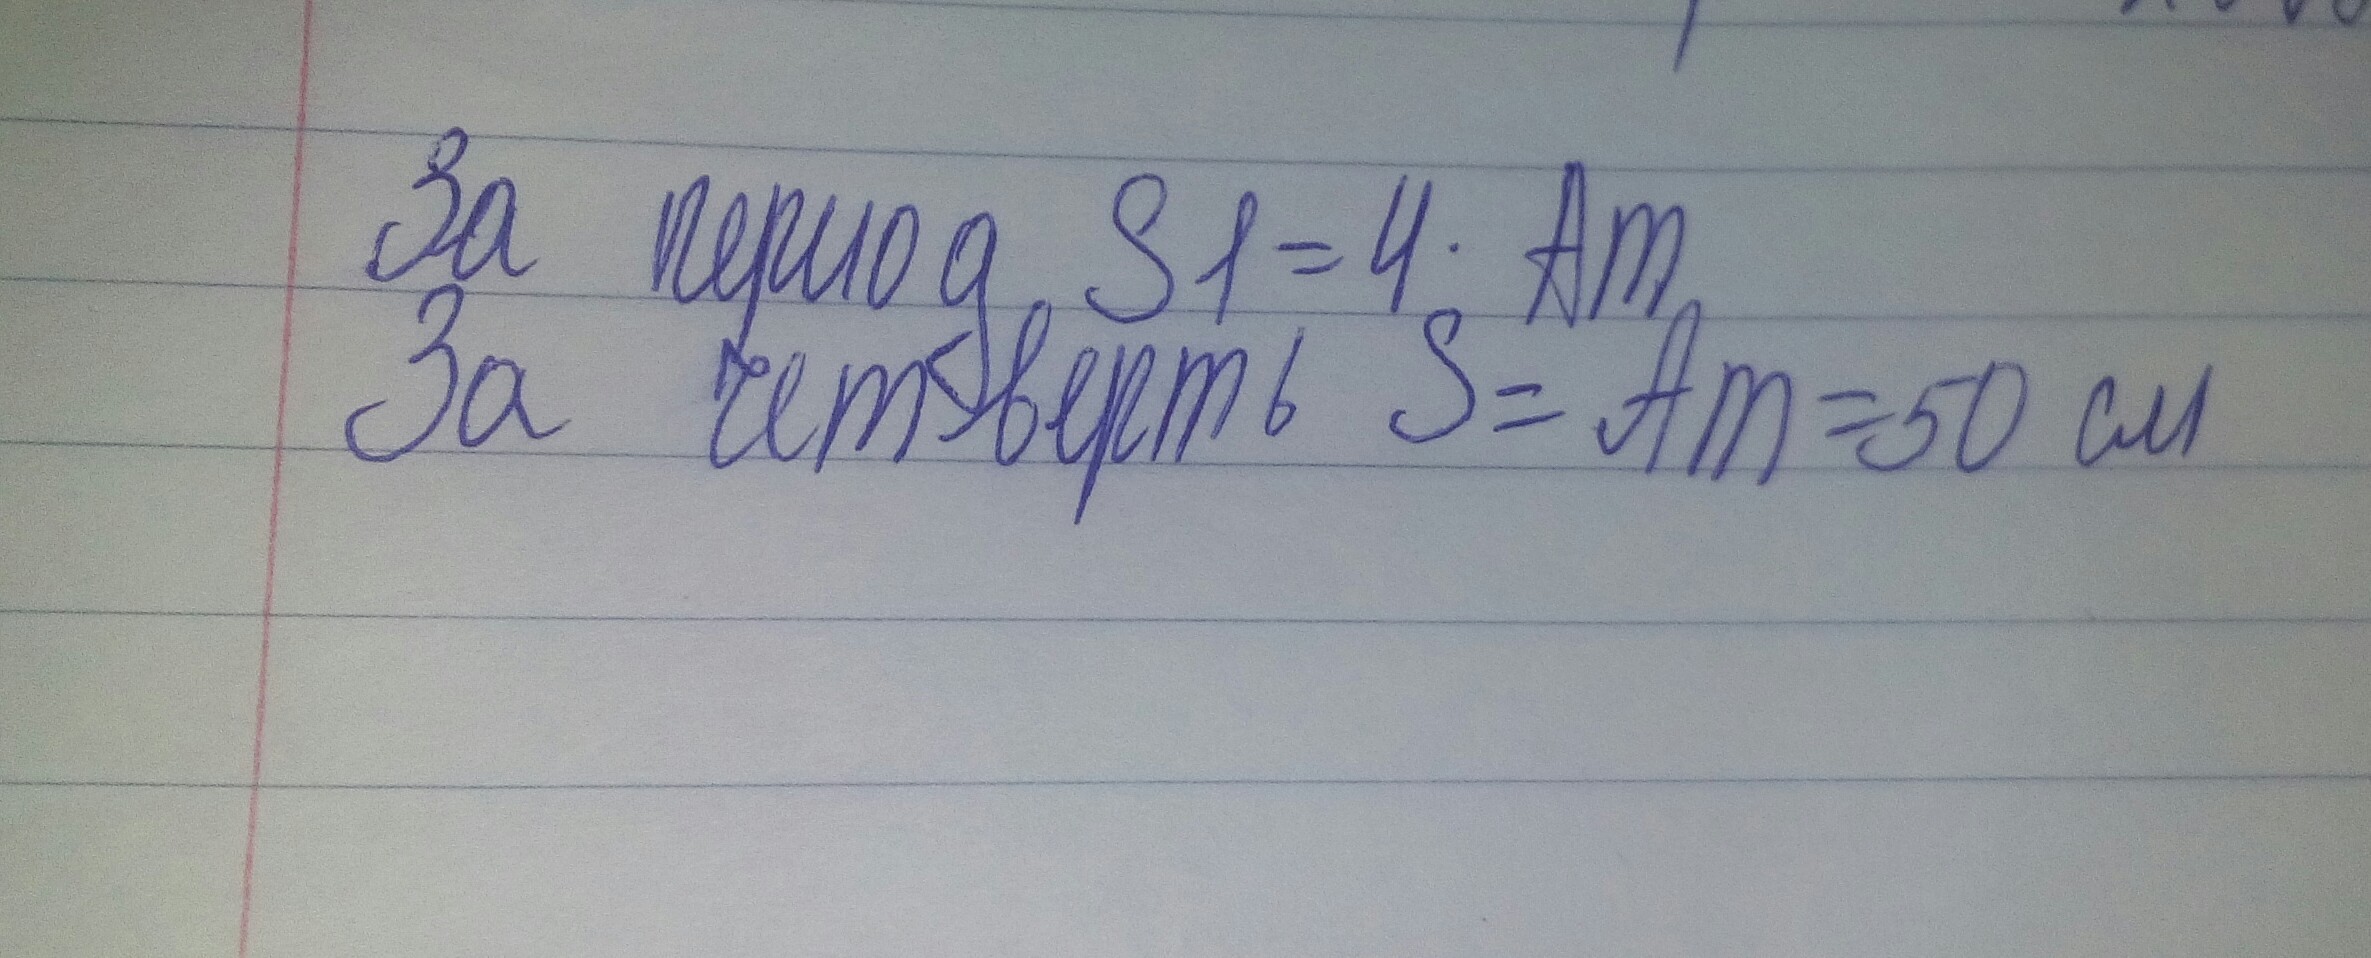 За период S1=4· Am
За четверть S= Am=50 см